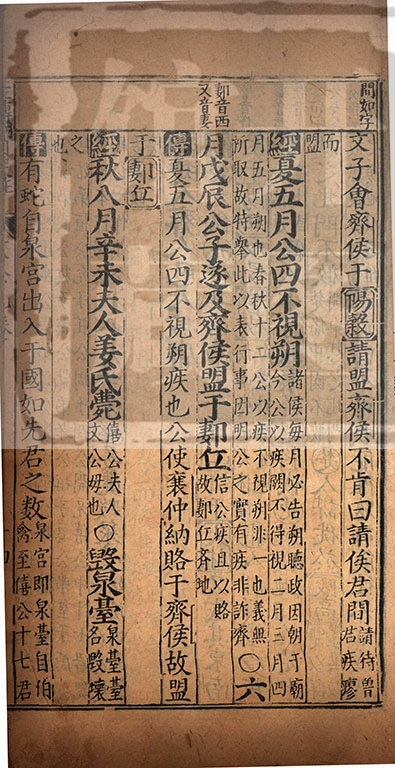 間如字
文子會齊侯于陽穀請盟齊侯不肯曰請俟君間請待魯君疾瘳
而盟
經夏五月公四不視朔諸侯每月必告朔聽政因朝于廟今公以疾闕不得視二月三月四
月五月朔也春秋十二公以疾不視朔非一也義無所取故特舉此以表行事因明公之實有疾非詐齊○六
郪音西又音妻
月戊辰公子遂及齊侯盟于郪丘信公疾且以賂故郪丘齊地
傳夏五月公四不視朔疾也公使襄仲納賂于齊侯故盟
于郪丘
經秋八月辛未夫人姜氏薨僖公夫人文公母也○毀泉臺泉臺臺名毀壞
之也
傳有蛇自泉宮出入于國如先君之數泉宮即泉臺自伯禽至僖公十七君